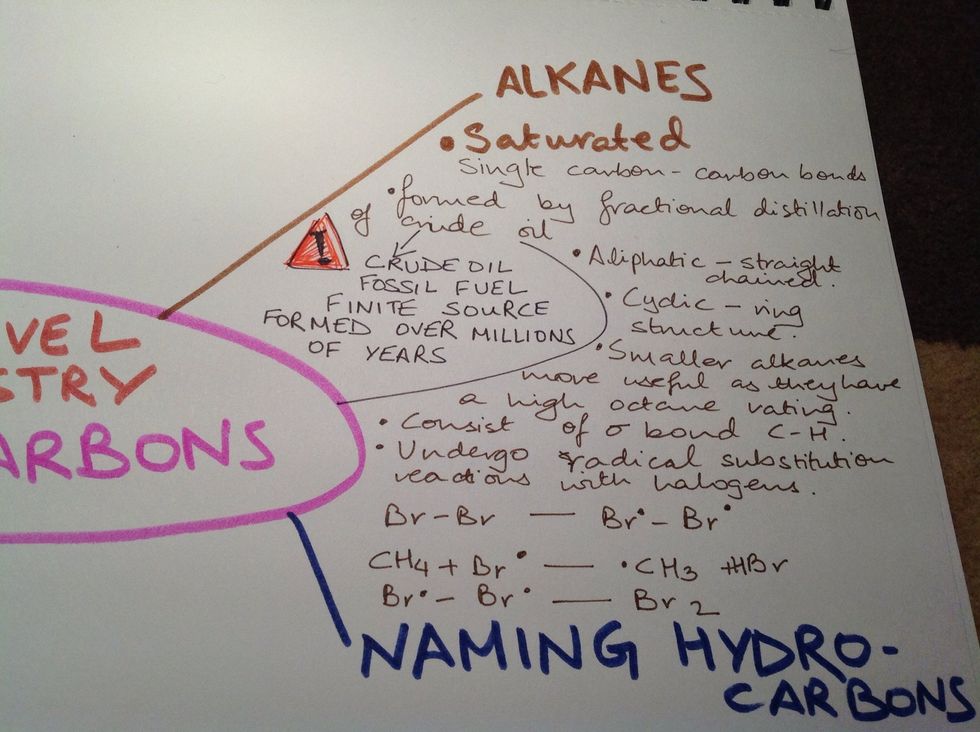 ALKANES
• Saturated
Single carbon - carbon bonds
• formed by fractional distillation
of crude oil
!
CRUDE OIL
FOSSIL FUEL
FINITE SOURCE
FORMED OVER MILLIONS
OF YEARS
• Aliphatic - straight
chained.
• Cyclic - ring
structure.
• Smaller alkanes
more useful as they have
a high octane rating.
• Consist of σ bond C-H.
• Undergo radical substitution
reactions with halogens.
Br-Br — Br• - Br•
CH4 + Br• — •CH3 + HBr
Br• - Br• — Br2
VEL
STRY
ARBONS
NAMING HYDRO-
CARBONS